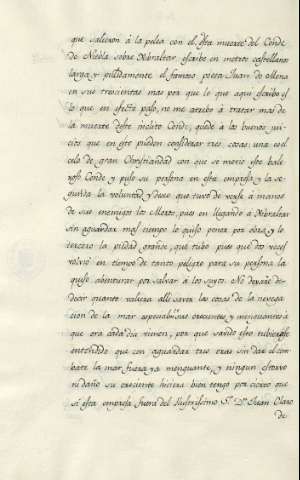 que salieron á la pelea con el, esta muerte del Conde
de Niebla sobre Gibraltar escribe en metro castellano
larga y pulidamente el famoso poeta Juan de Mena
en sus trescientas mas por que lo que aqui escribo es
lo que en efecto paso, no me atrevo á tratar mas de
la muerte deste inclito Conde, quede á los buenos jui-
cios que en esto pueden considerar tres cosas una es el
celo de gran Christiandad con que se movio este bale-
roso Conde y puso su persona en esta empresa y la se-
gunda la voluntad y deseo que tuvo de verse á manos
de sus enemigos los Moros, pues en llegando á Gibraltar
sin aguardar mas tiempo lo quiso poner por obra y lo
tercero la piedad grande, que tubo pues que dos veces
volvió en tiempo de tanto peligro para su persona la
quiso abinturar por salvar á los suyos. No dexaré de
decir quanto valiera alli saver las cosas de la navega-
cion de la mar especialm.te sus crecientes y menguantes á
que ora cada dia vienen, por que savido esto tubierase
entendido que con aguardar tres oras sin dar el com-
bate la mar fuera ya menguante, y ningun estorvo
ni daño su creciente hiciera bien tengo por cierto que
si esta empresa fuera del Illustrisimo S.r D.n Juan Claro
de